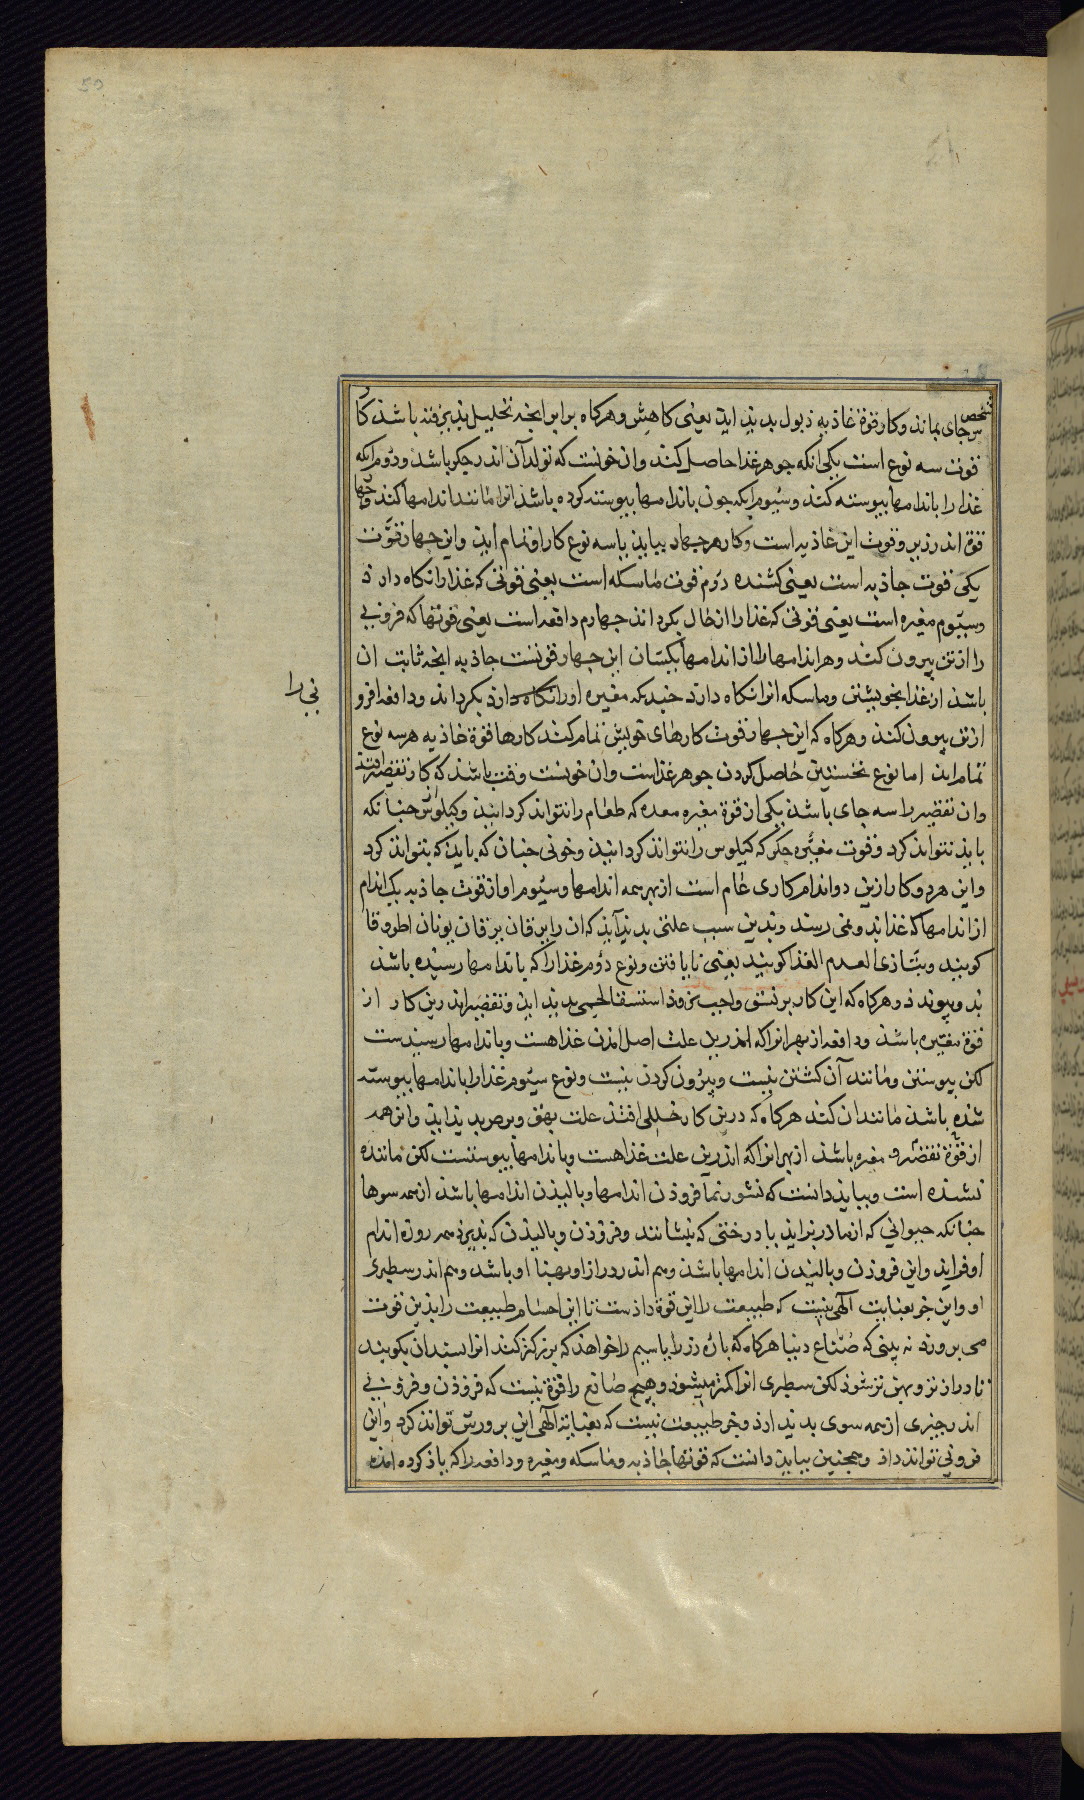 50
شخص
برجای بماند و کار قوة غاذیه ذبول بدید اید یعنی کاهش و هرکاه برابر انچه تحلیل پذیرفته باشذ کار
قوت سه نوع است یکی انکه جوهر غذا حاصل کند و ان خونست که تولد آن اندر جکر باشد و دوم انکه
غذا را باندامها پیوسته کند و سیوم انکه جون باندامها پیوسته کرده باشذ انرا مانند اندامها کند
قوة اندر زیر و قوت این غاذیه است و کار هر جهار بیاید تا سه نوع کار او تمام اید و این جهار قوّت
یکی قوت جاذبه است یعنی کشنده دوم قوت ماسکه است یعنی قوتی که غذا را نکاه دارد
و سیوم مغیره است یعنی قوتی که غذا را از حال بکرداند جهارم دافعه است یعنی قوتها که فزونی
را از تن بیرون کند و هر اندامها را از اندامها یکسان این جهار قوتست جاذبه انچه ثابت ان
باشذ از غذا بخویشتن و ماسکه انرا نکاه دارد جندانکه مغیره او را نکاه دارد بکرداند و دافعه افزو
نی را
از تن بیرون کند و هرکاه که این جهار قوت کارهای خویش تمام کند کارها قوة غاذیه هر سه نوع
تمام اید اما نوع نخستین حاصل کردن جوهر غذاست و ان خونست وقت باشذ که کار تقصیر افتد
و ان تقصیر را سه جای باشذ یکی از قوة مغیره معده که طعام را نتواند کردانیذ و کیلوس جنانکه
بایذ نتواند کرد و قوت مغیّره جکر که کیلوس را نتواند کردانیذ و خونی جنان که بایذ که بتواند کرد
و این هر دو کار ازین دو اندام کاری عام است از بهر همه اندامها و سیوم او از قوت جاذبه یک اندام
از اندامها که غذا بدو نمی رسد و بدین سبب علتی بدید آید که ان را بزفان یونان اطروقا
کویند و بتازی العدم الغذا کویند یعنی نایافتن و نوع دوم غذا را که باندامها رسیده باشذ
بدو پیوندد و هرکاه که این کار بر نسق واجب نروذ استسقا لحمی بدید اید و تقصیر اندرین کار از
قوة مغیّره باشذ و دافعه از بهر انرا که اندرین علت اصل المدن غذا هست و باندامها رسیدست
لکن پیوستن و مانند آن کشتن نیست و بیرون کردن نیست و نوع سیوم غذا را باندامها پیوسته
شده باشذ مانند ان کند هرکاه که درین کار خللی افتد علت بهق و برص بدید اید و این همه
از قوّة مغیره باشذ از بهر انرا که اندرین علت غذا هست و باندامها پیوستست لکن ماننده
نشده است و بباید دانست که نشو و نما فزوذن اندامها و بالیذن اندامها باشذ از همه سوها
جنانکه حیوانی که از ماذر بزاید یا درختی که بنشانند و فزوذن و بالیذن که بذیرد همه روزه اندام
او فزاید و این فزوذن و بالیدن اندامها باشذ و هم اندر درازا و پهنا او باشد و هم اندر سطبری
او و این جز بعنایت الهی نیست که طبیعت را این قوة داذست تا این اجسام طبیعت را بذین قوت
می برورد نه بینی که صُنّاع دنیا هرکاه که پاره زر را یا سیم را خواهذ که بزرکتر کند انرا بسندان بکوبند
تا دراز تر و پهن تر شوذ لکن سطبری انرا کمتر میشوذ و هیچ صانع را قوة نیست که فزوذن و فزونی
اندر چیزی از همه سوی بدید ارد و جز طبیعت نیست که بعنایة الهی این برورش تواند کرد و این
فزونی تواند داذ و همچنین بباید دانست که قوتها جاذبه و ماسکه و مغیره و دافعه را که یاذ کرده امده